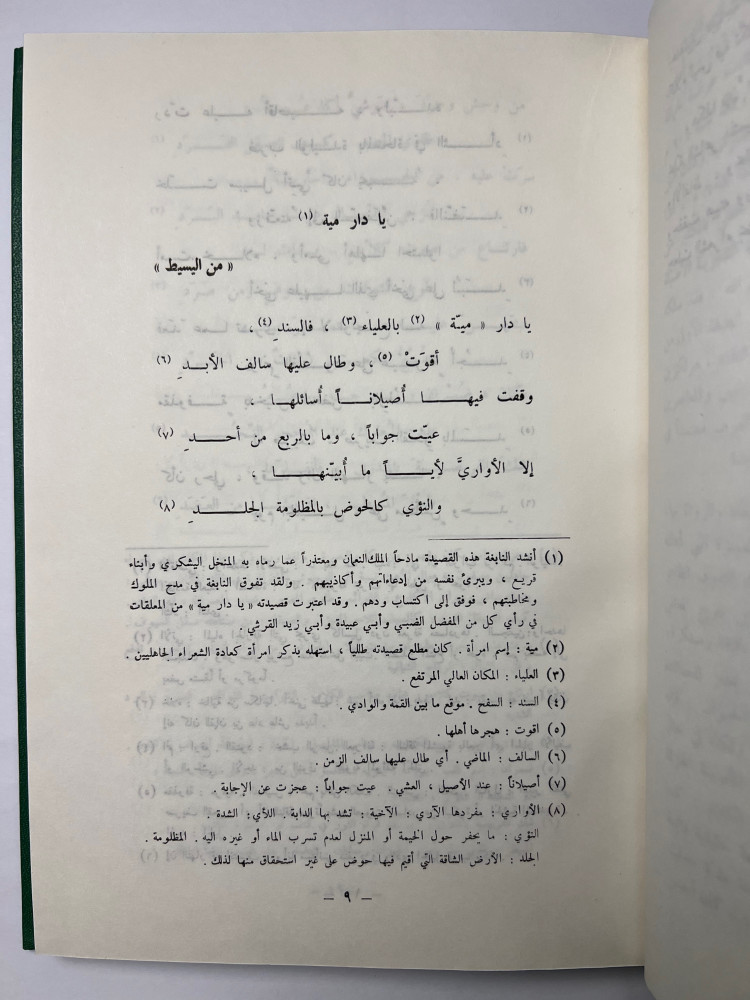 يا دار مية (١)
« من البسيط »
يا دار « ميّة » (٢) بالعلياء (٣) ، فالسندِ (٤) ،
أقوَتْ (٥) ، وطال عليها سالف الأبدِ (٦)
وقفت فيهــا أُصيلانــاً أُسائلهــا ،
عيّت جواباً ، وما بالربع من أحــدِ (٧)
إلا الأواريَّ لأيــاً ما أُبيّنهــا ،
والنؤي كالحوض بالمظلومة الجلــدِ (٨)
(١) أنشد النابغة هذه القصيدة مادحاً الملك النعمان ومعتذراً عما رماه به المنخل اليشكري وأبناء
قريع ، ويبرئ نفسه من إدعاءاتهم وأكاذيبهم . ولقد تفوق النابغة في مدح الملوك
ومخاطبتهم ، فوفق إلى اكتساب ودهم . وقد اعتبرت قصيدته « يا دار مية » من المعلقات
في رأي كل من المفضل الضبي وأبي عبيدة وأبي زيد القرشي .
(٢) مية : إسم امرأة . كان مطلع قصيدته طللياً ، استهله بذكر امرأة كعادة الشعراء الجاهليين .
(٣) العلياء : المكان العالي المرتفع .
(٤) السند : السفح . موقع ما بين القمة والوادي .
(٥) اقوت : هجرها أهلها .
(٦) السالف : الماضي . أي طال عليها سالف الزمن .
(٧) أصيلاناً : عند الأصيل ، العشي . عيت جواباً : عجزت عن الإجابة .
(٨) الأواري : مفردها الآري : الآخية : تشد بها الدابة . اللأي : الشدة .
النؤي : ما يحفر حول الخيمة أو المنزل لعدم تسرب الماء أو غيره اليه . المظلومة .
الجلد : الأرض الشاقة التي أقيم فيها حوض على غير استحقاق منها لذلك .
– ٩ –